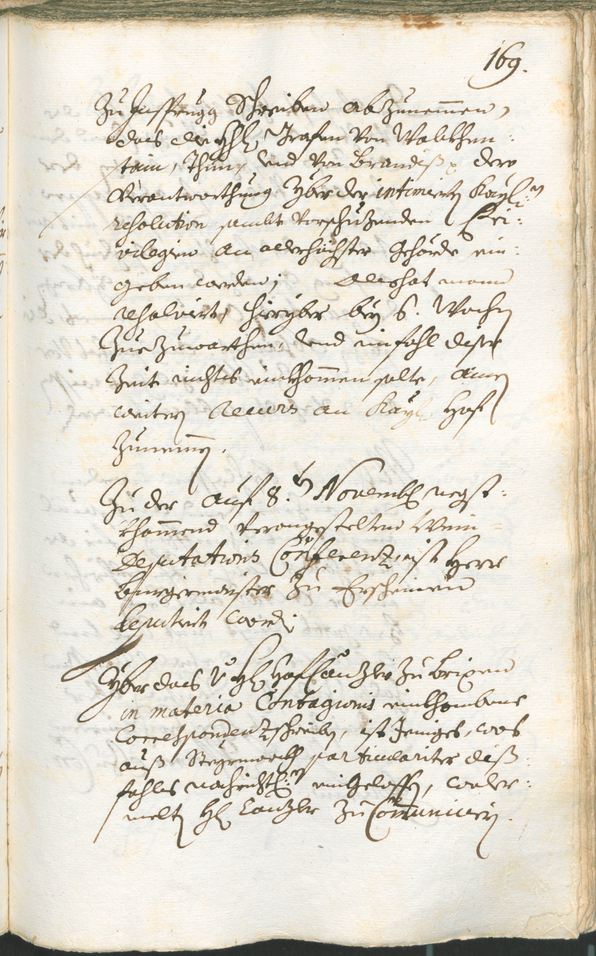 169.
Zu Insprugg Schreiben abzunemmen,
das die hhl. Grafen von Wolkhen:
stain, Thun, und von Brandiß dero
Verantworthung yber der intimierten Kayl:
resolution sambt vorschuzenden Pri:
vilegien an allerhöchster Gehörde ein:
geben werden; Also hat mann
resolvirt, hieryber bey 6. Wochen
Zuezuwarthen, und imfahl diser
Zeit nichts einkhommen solte, ainen
weitern recurs an Kayl. Hof
Zunemmen.
Zu der auf 8.ten Novembris negst:
khommend veranngestelten Wein
Deputations Conferenz ist Herr
Burgermaister zu Erscheinen
deputirt worden.
Yber das v. H. Hofcanzler zu Brixen
in materia Contagionis einkhombene
Correspondenzschreiben, ist Jeniges, was
auß Steyrmarkh particulariter diß:
fahls nachrichtl. eingeloffen, woler:
melten H. Canzler zu Communiciern.